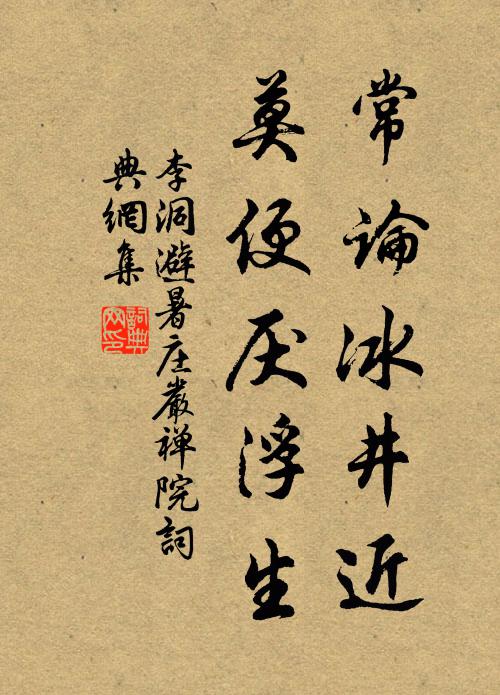 常论冰井近
莫便厌浮生
李洞避暑庄严禅院词
典网集
词典网印